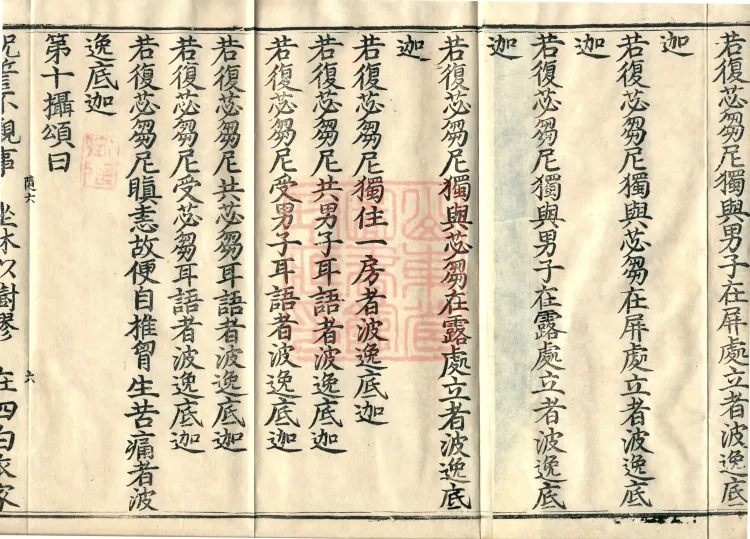 若復苾芻尼獨與男子在屏處立者波逸底
迦
若復苾芻尼獨與苾芻在屏處立者波逸底
迦
若復苾芻尼獨與男子在露處立者波逸底
迦
若復苾芻尼獨與苾芻在露處立者波逸底
迦
若復苾芻尼獨住一房者波逸底迦
若復苾芻尼共男子耳語者波逸底迦
若復苾芻尼受男子耳語者波逸底迦
若復苾芻尼共苾芻耳語者波逸底迦
若復苾芻尼受苾芻耳語者波逸底迦
若復苾芻尼瞋恚故便自椎胷生苦痛者波
逸底迦
第十攝頌曰
六 六
觀事 坐牀以樹膠 在四白衣家